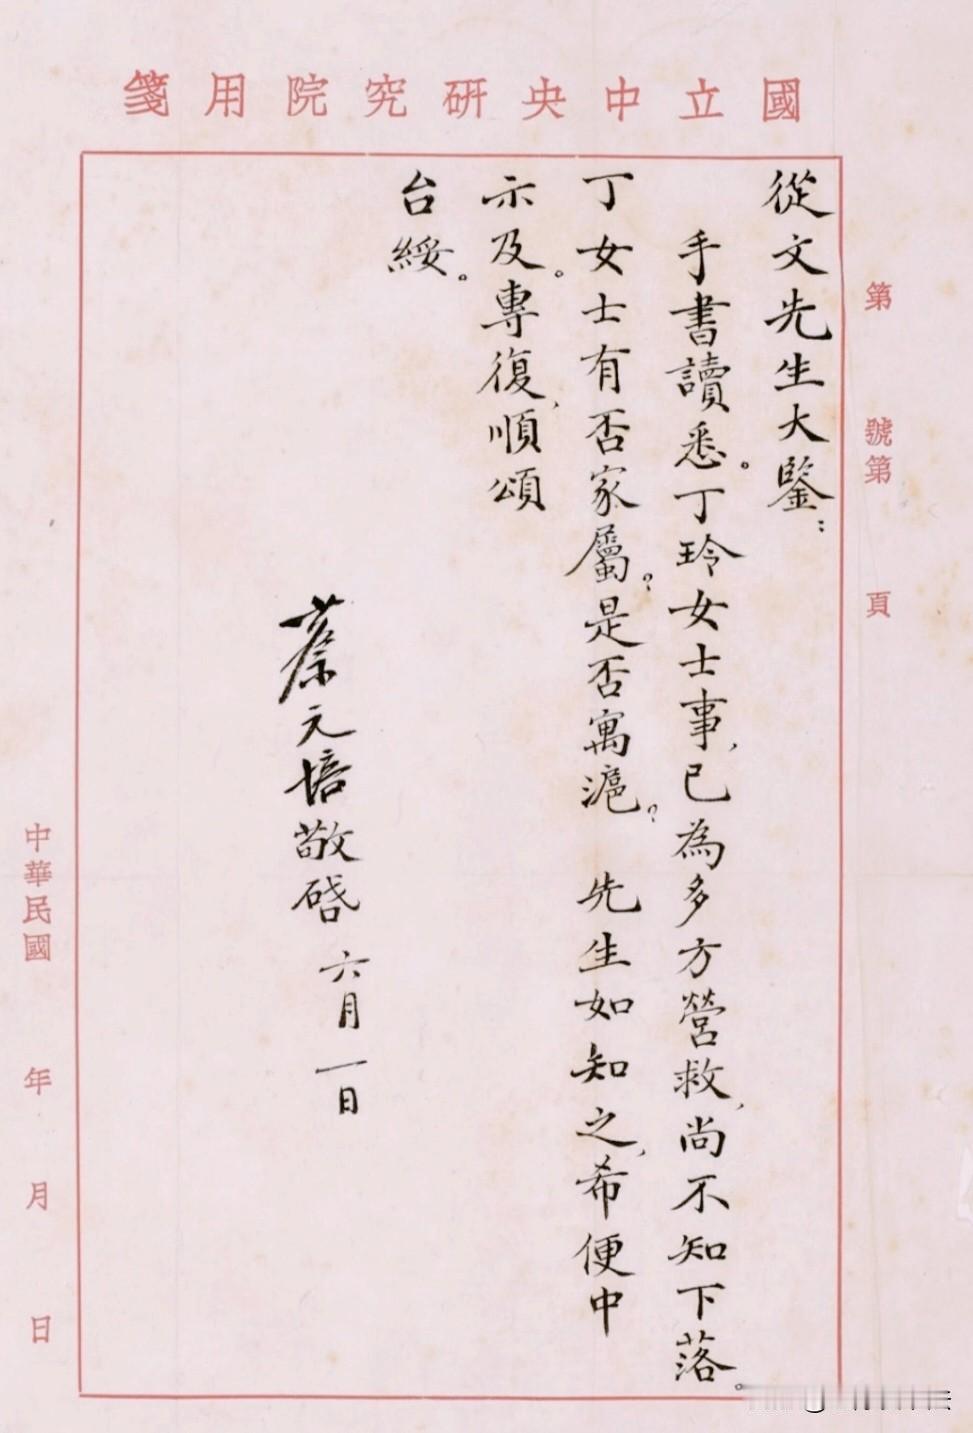 國立中央研究院用箋
第 號第 頁
從文先生大鑒：
手書讀悉。丁玲女士事，已為多方營救，尚不知下落。
丁女士有否家屬？是否寓滬？ 先生如知之，希便中
示及。專復，順頌
台綏。
蔡元培敬啓 六月一日
中華民國 年 月 日